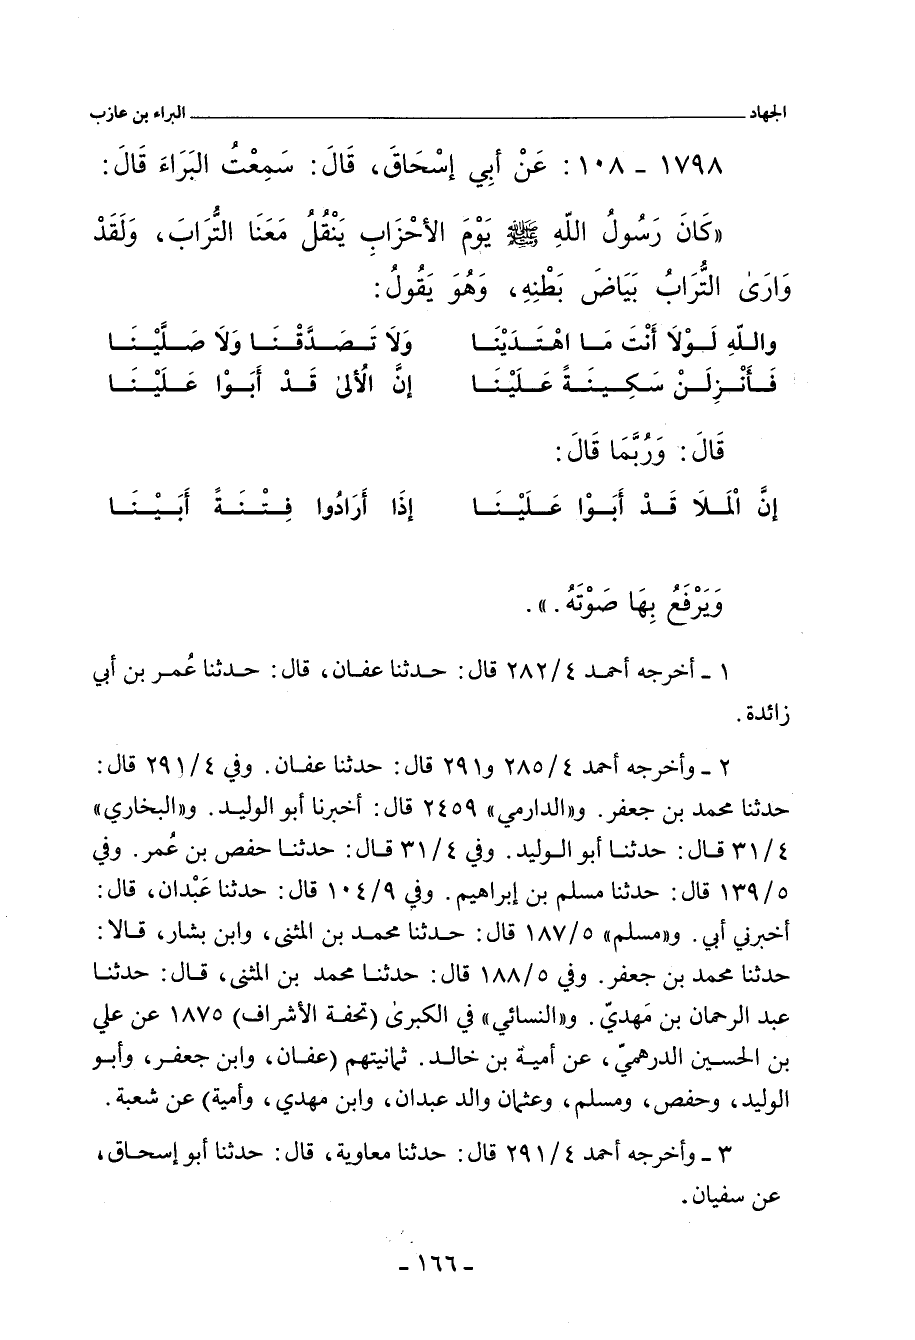 الجهاد ــــــــــــــــ البراء بن عازب
١٧٩٨ - ١٠٨: عَنْ أَبِي إِسْحَاقَ، قَالَ: سَمِعْتُ البَرَاءَ قَالَ:
«كَانَ رَسُولُ اللّهِ ﷺ يَوْمَ الأَحْزَابِ يَنْقُلُ مَعَنَا التُّرَابَ، وَلَقَدْ
وَارَىٰ التُّرَابُ بَيَاضَ بَطْنِهِ، وَهُوَ يَقُولُ:
واللّهِ لَوْلَا أَنْتَ مَا اهْتَدَيْنَا وَلَا تَصَدَّقْنَا وَلَا صَلَّيْنَا
فَأَنْزِلَنْ سَكِينَةً عَلَيْنَا إِنَّ الْأُلَىٰ قَدْ أَبَوْا عَلَيْنَا
قَالَ: وَرُبَّمَا قَالَ:
إِنَّ الْمَلَا قَدْ أَبَوْا عَلَيْنَا إِذَا أَرَادُوا فِتْنَةً أَبَيْنَا
وَيَرْفَعُ بِهَا صَوْتَهُ.».
١ - أخرجه أحمد ٢٨٢/٤ قال: حدثنا عفان، قال: حدثنا عُمر بن أبي
زائدة.
٢ - وأخرجه أحمد ٢٨٥/٤ و٢٩١ قال: حدثنا عفان. وفي ٢٩١/٤ قال:
حدثنا محمد بن جعفر. و«الدارمي» ٢٤٥٩ قال: أخبرنا أبو الوليد. و«البخاري»
٣١/٤ قال: حدثنا أبو الوليد. وفي ٣١/٤ قال: حدثنا حفص بن عُمر. وفي
١٣٩/٥ قال: حدثنا مسلم بن إبراهيم. وفي ١٠٤/٩ قال: حدثنا عَبْدان، قال:
أخبرني أبي. و«مسلم» ١٨٧/٥ قال: حدثنا محمد بن المثنى، وابن بشار، قالا:
حدثنا محمد بن جعفر. وفي ١٨٨/٥ قال: حدثنا محمد بن المثنى، قال: حدثنا
عبد الرحمان بن مَهديّ. و«النسائي» في الكبرىٰ (تحفة الأشراف) ١٨٧٥ عن علي
بن الحسين الدرهميّ، عن أمية بن خالد. ثمانيتهم (عفان، وابن جعفر، وأبو
الوليد، وحفص، ومسلم، وعثمان والد عبدان، وابن مهدي، وأمية) عن شعبة.
٣ - وأخرجه أحمد ٢٩١/٤ قال: حدثنا معاوية، قال: حدثنا أبو إسحاق،
عن سفيان.
- ١٦٦ -